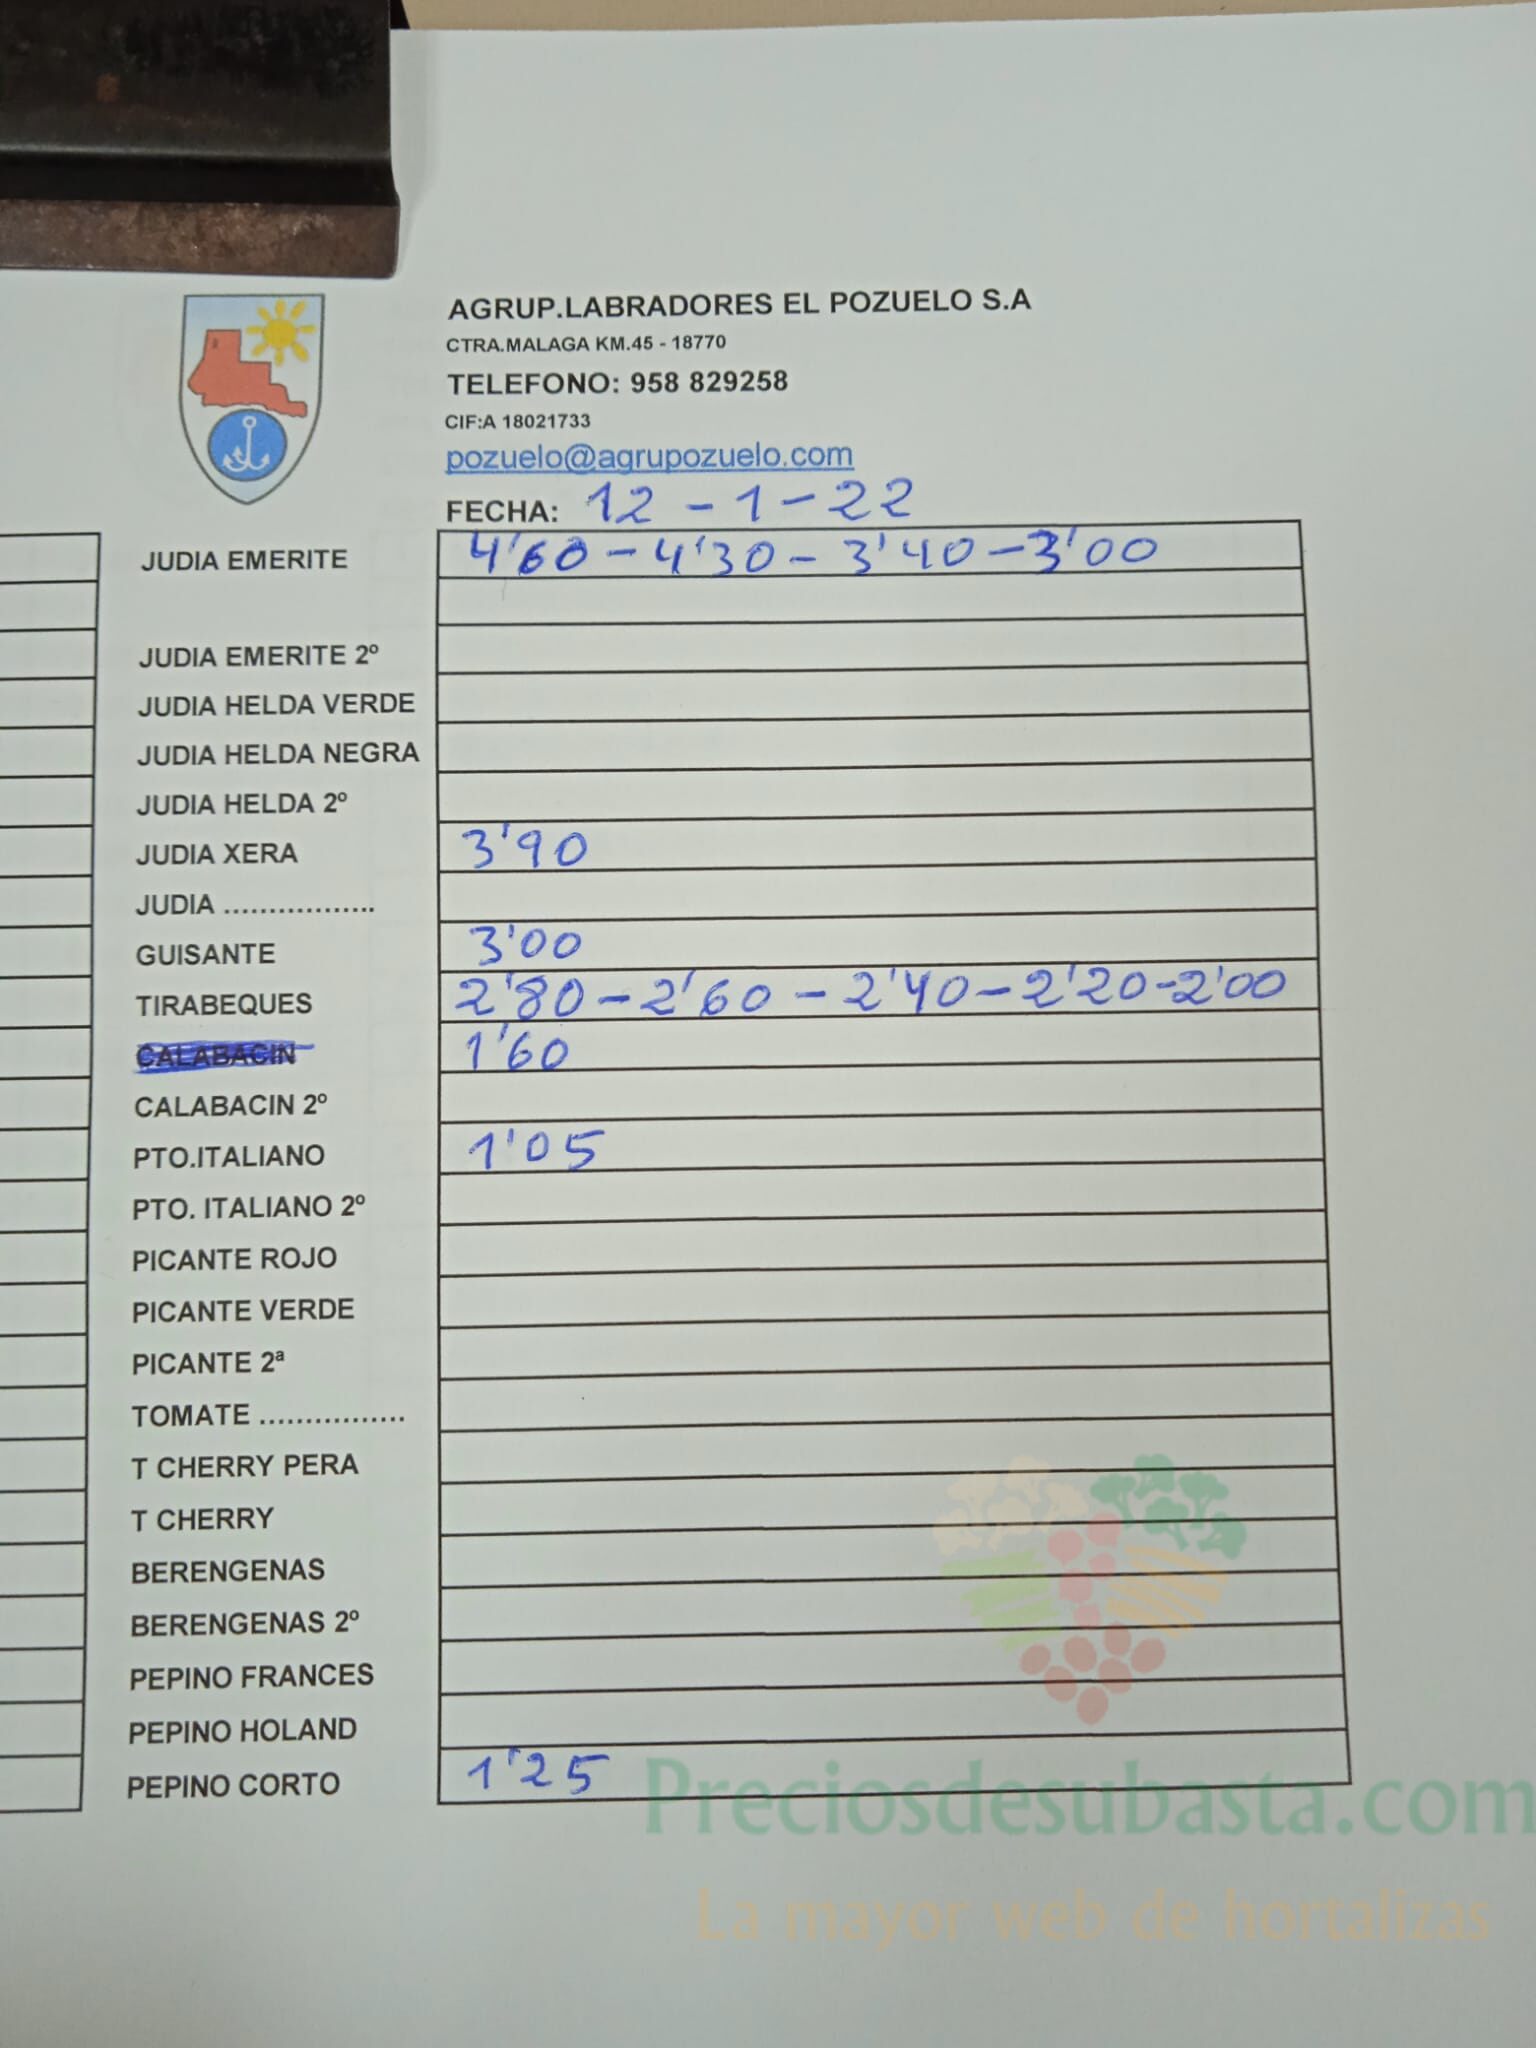 AGRUP.LABRADORES EL POZUELO S.A
CTRA.MALAGA KM.45 - 18770
TELEFONO: 958 829258
CIF:A 18021733
pozuelo@agrupozuelo.com
FECHA: 12 - 1 - 22
JUDIA EMERITE 4'60 - 4'30 - 3'40 - 3'00
JUDIA EMERITE 2º
JUDIA HELDA VERDE
JUDIA HELDA NEGRA
JUDIA HELDA 2º
JUDIA XERA 3'90
JUDIA .................
GUISANTE 3'00
TIRABEQUES 2'80 - 2'60 - 2'40 - 2'20 - 2'00
CALABACIN 1'60
CALABACIN 2º
PTO.ITALIANO 1'05
PTO. ITALIANO 2º
PICANTE ROJO
PICANTE VERDE
PICANTE 2ª
TOMATE ................
T CHERRY PERA
T CHERRY
BERENGENAS
BERENGENAS 2º
PEPINO FRANCES
PEPINO HOLAND
PEPINO CORTO 1'25
Preciosdesubasta.com
La mayor web de hortalizas